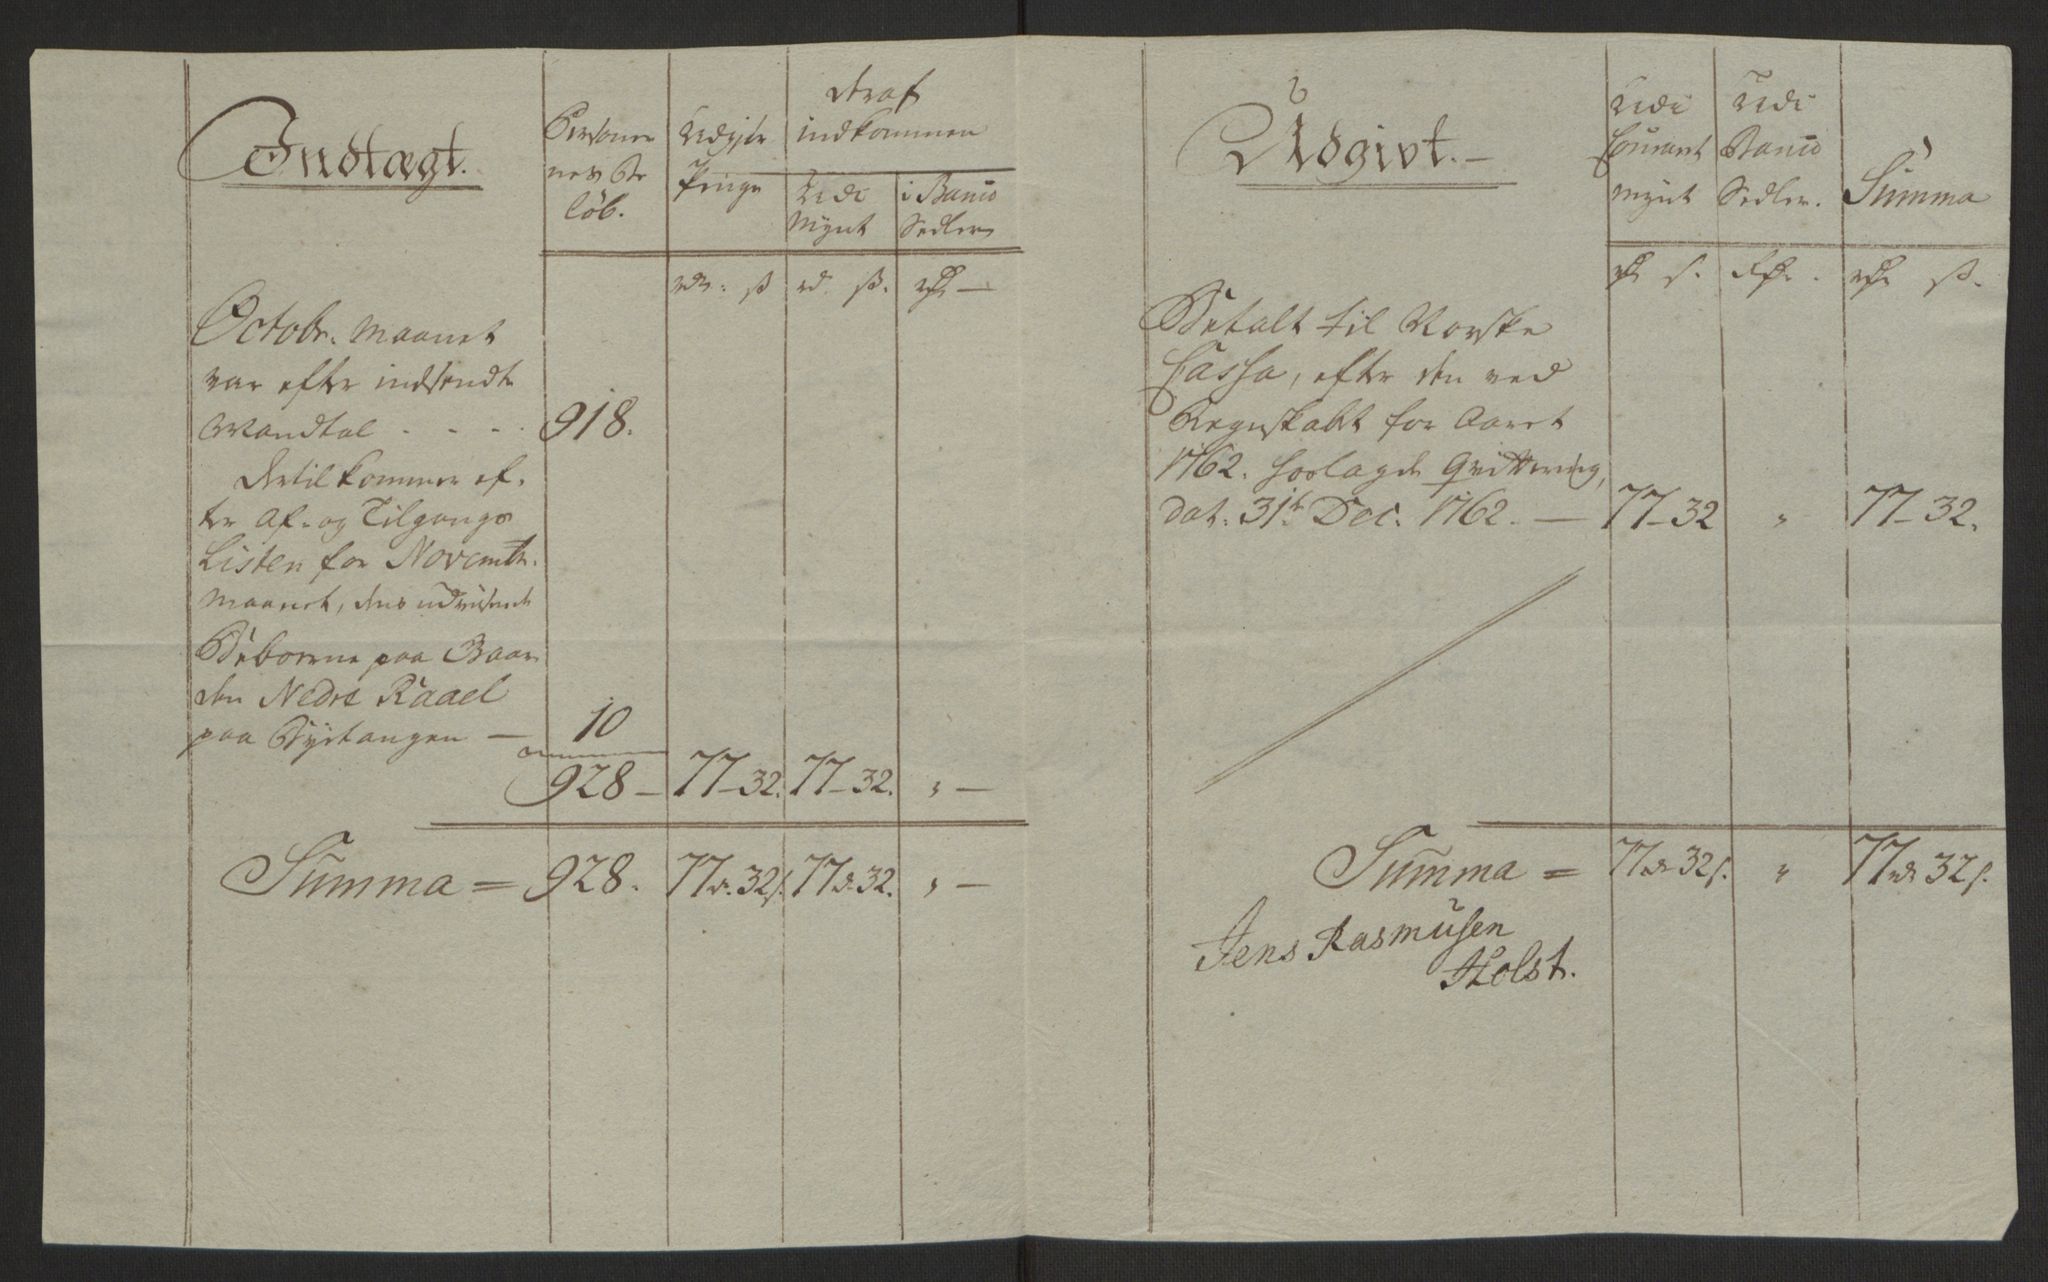 Indtægt.
Personer
nes Be
löb.
Udgjør
Penge
deraf
indkommen
udi
Mynt
i Banco
Sedler
rdr. ß rd. ß. rdr —
Octobr. Maanet
var efter indsendte
Mandtal - - - - 918.
dertil kommer ef-
ter Af- og Tilgangs
Listen for Novembr.
Maanet, dens udviisende
Beboerne paa Gaar
den Nedre Raael
paa - 10
928 - 77-32. 77-32. " —
Summa = 928. 77 rd. 32 ß. 77 rd. 32. " —
Udgivt. —
udi
Courant
Mynt
udi
Banco
Sedler.
Summa
rdr ß. rdr. rdr ß.
Betalt til Norske
Cassa, efter den ved
Regnskabet for Aaret
1762. hoslagde Qvittering,
dat. 31te Dec. 1762. — 77-32 " 77-32.
Summa = 77 rd 32 ß. " 77 rd 32 ß.
Jens Rasmusen
Holst.